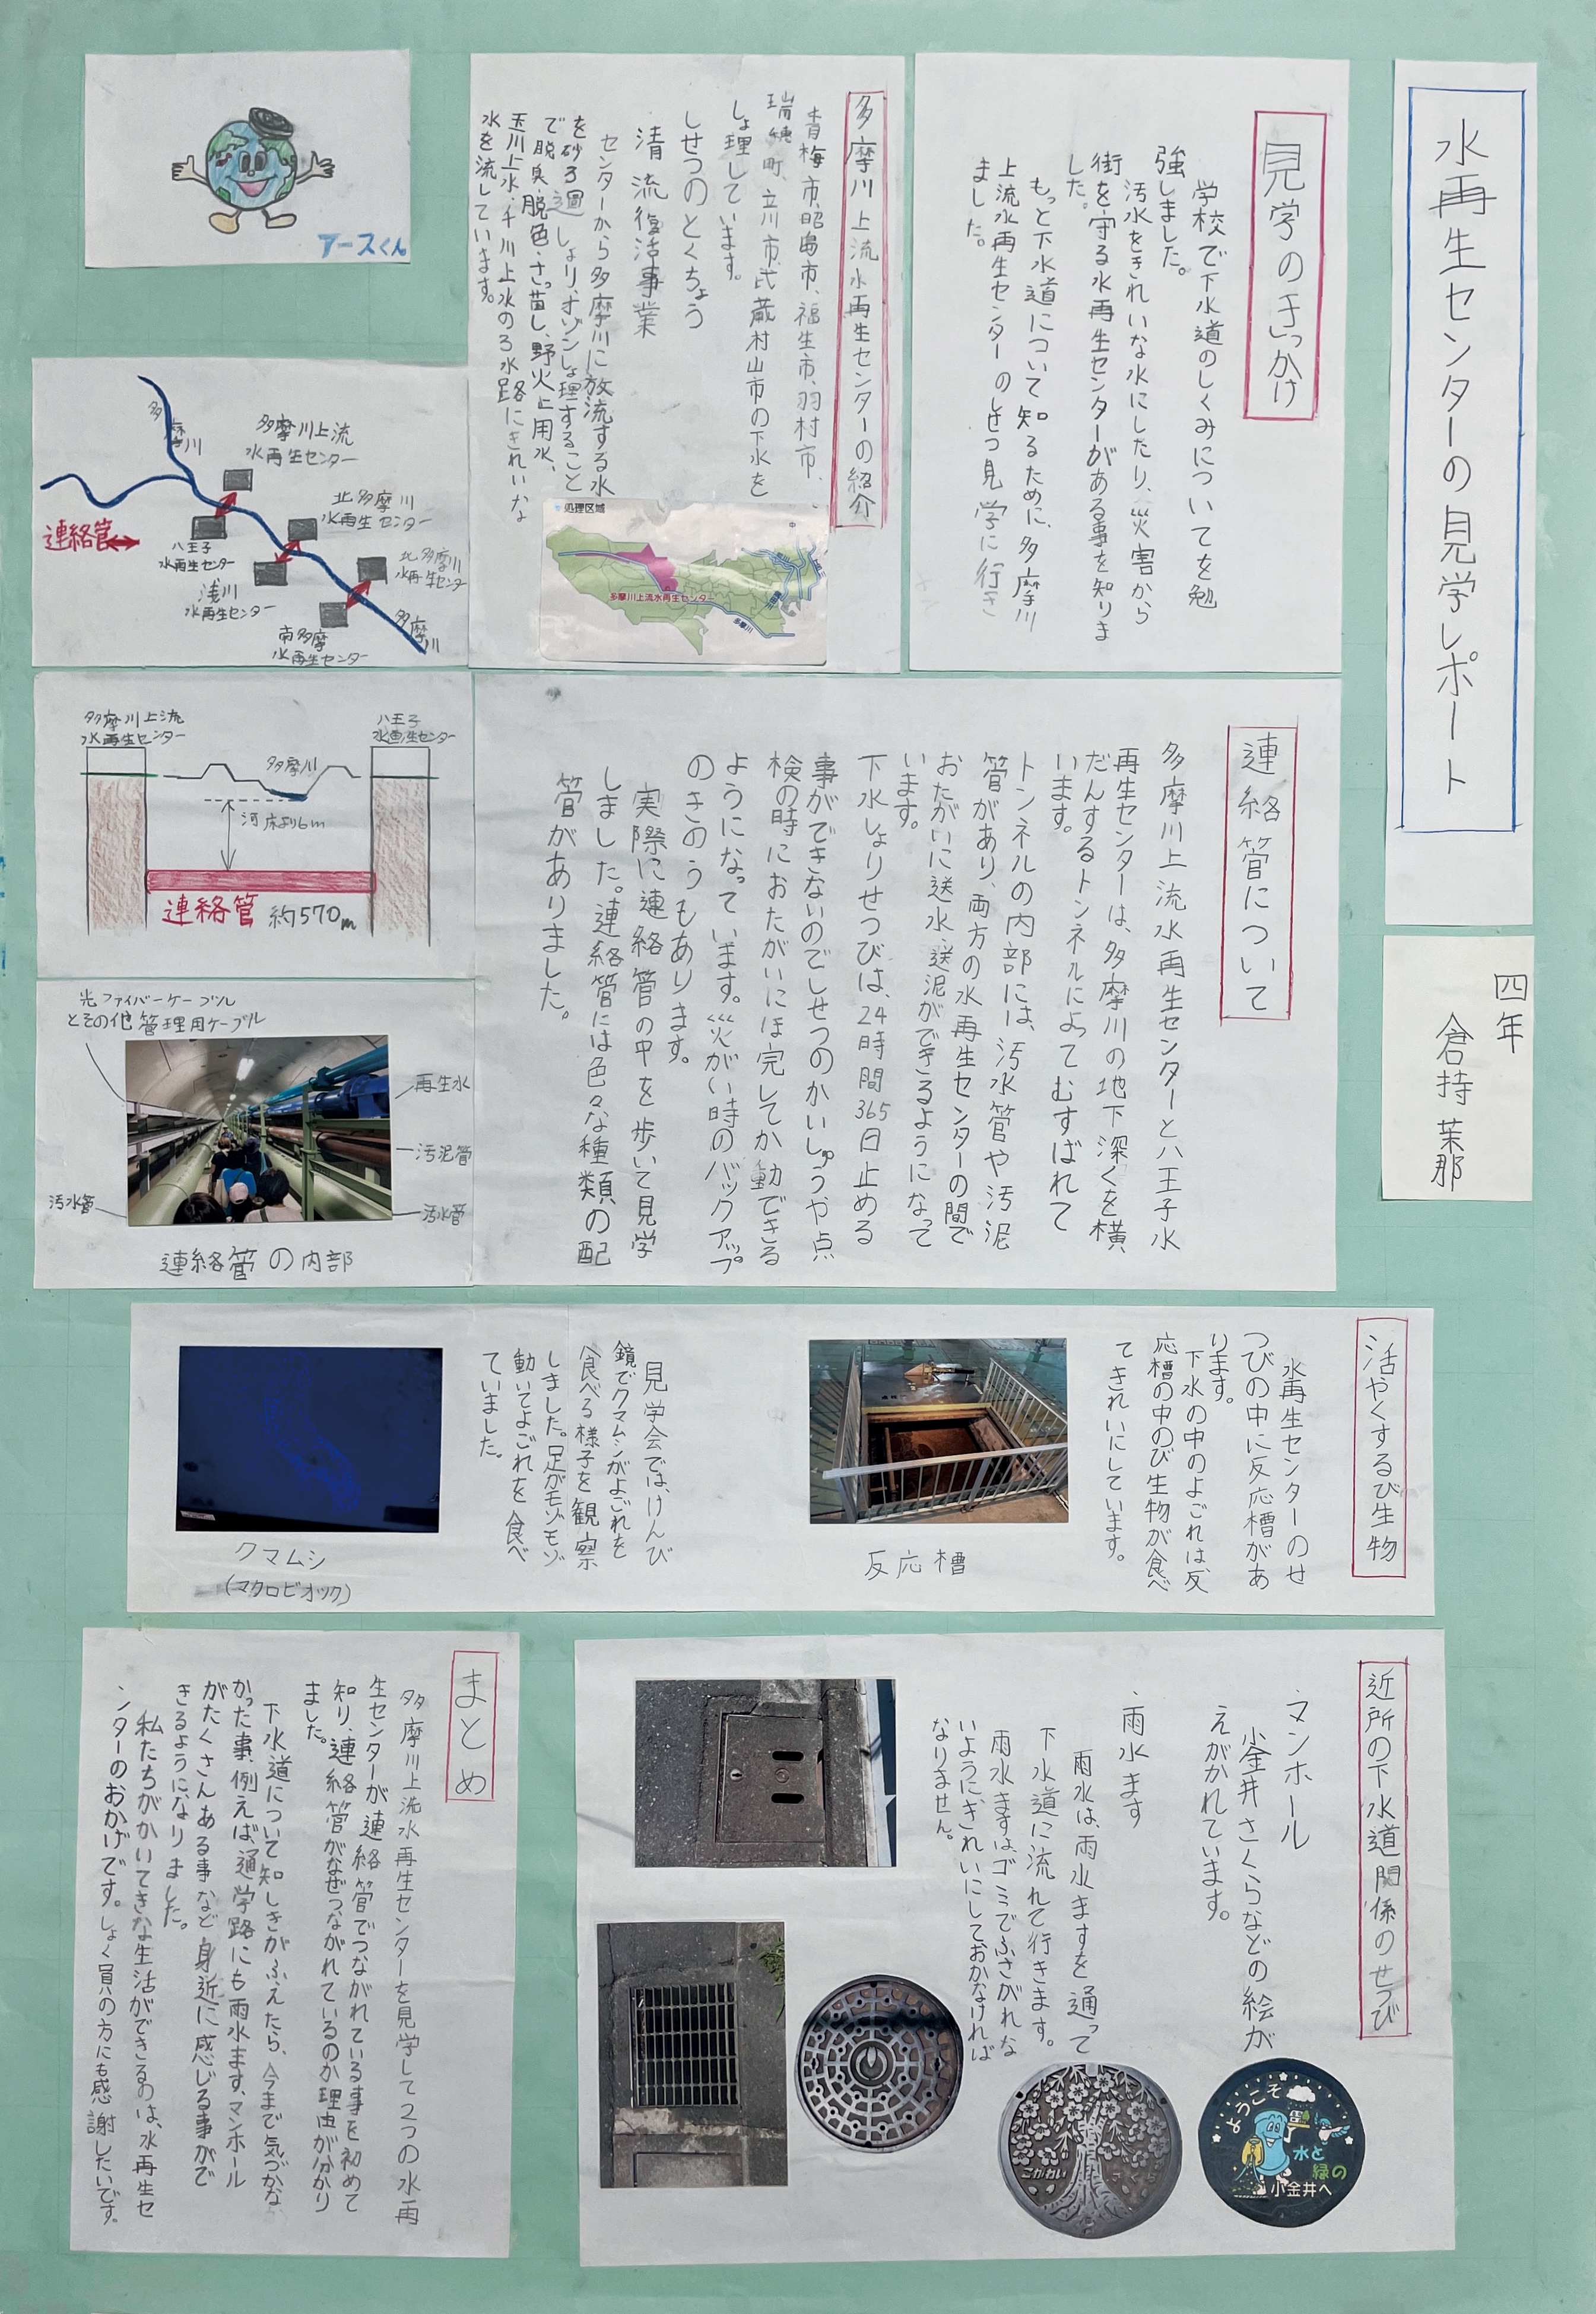 水再生センターの見学レポート
四年
倉持茉那
見学のきっかけ
学校で下水道のしくみについてを勉
強しました。
汚水をきれいな水にしたり、災害から
街を守る水再生センターがある事を知りま
した。
もっと下水道について知るために、多摩川
上流水再生センターのしせつ見学に行き
ました。
多摩川上流水再生センターの紹介
青梅市、昭島市、福生市、羽村市、
瑞穂町、立川市、武蔵村山市の下水を
しょ理しています。
しせつのとくちょう
清流復活事業
センターから多摩川に放流する水
を砂ろ過しょり、オゾンしょ理すること
で脱臭・脱色・さっ菌し、野火止用水、
玉川上水・千川上水のろ水路にきれいな
水を流しています。
処理区域
多摩川上流水再生センター
多摩川
アースくん
多摩川
多摩川上流
水再生センター
北多摩川
水再生センター
連絡管
八王子
水再生センター
浅川
水再生センター
北多摩川
水再生センター
南多摩
水再生センター
多摩川
連絡管について
多摩川上流水再生センターと八王子水
再生センターは、多摩川の地下深くを横
だんするトンネルによってむすばれて
います。
トンネルの内部には、汚水管や汚泥
管があり、両方の水再生センターの間で
おたがいに送水・送泥ができるようになって
います。
下水しょりせつびは、24時間365日止める
事ができないのでしせつのかいしゅうや点
検の時におたがいにほ完してか動できる
ようになっています。災がい時のバックアップ
のきのうもあります。
実際に連絡管の中を歩いて見学
しました。連絡管には色々な種類の配
管がありました。
多摩川上流
水再生センター
八王子
水再生センター
多摩川
河床より6m
連絡管 約570m
光ファイバーケーブル
とその他管理用ケーブル
再生水
汚泥管
汚水管
汚水管
連絡管の内部
活やくするび生物
水再生センターのせ
つびの中に反応槽があ
ります。
下水の中のよごれは反
応槽の中のび生物が食べ
てきれいにしています。
反応槽
見学会では、けんび
鏡でクマムシがよごれを
食べる様子を観察
しました。足がモゾモゾ
動いてよごれを食べ
ていました。
クマムシ
(マクロビオツク)
近所の下水道関係のせつび
・マンホール
小金井さくらなどの絵が
えがかれています。
・雨水ます
雨水は、雨水ますを通って
下水道に流れて行きます。
雨水ますは、ゴミでふさがれな
いようにきれいにしておかなければ
なりません。
ようこそ
水と
緑の
小金井へ
こがねい
まとめ
多摩川上流水再生センターを見学して2つの水再
生センターが連絡管でつながれている事を初めて
知り、連絡管がなぜつながれているのか理由が分かり
ました。
下水道について知しきがふえたら、今まで気づかな
かった事、例えば通学路にも雨水ます、マンホール
がたくさんある事など身近に感じる事がで
きるようになりました。
私たちがかいてきな生活ができるのは、水再生セ
ンターのおかげです。しょく員の方にも感謝したいです。